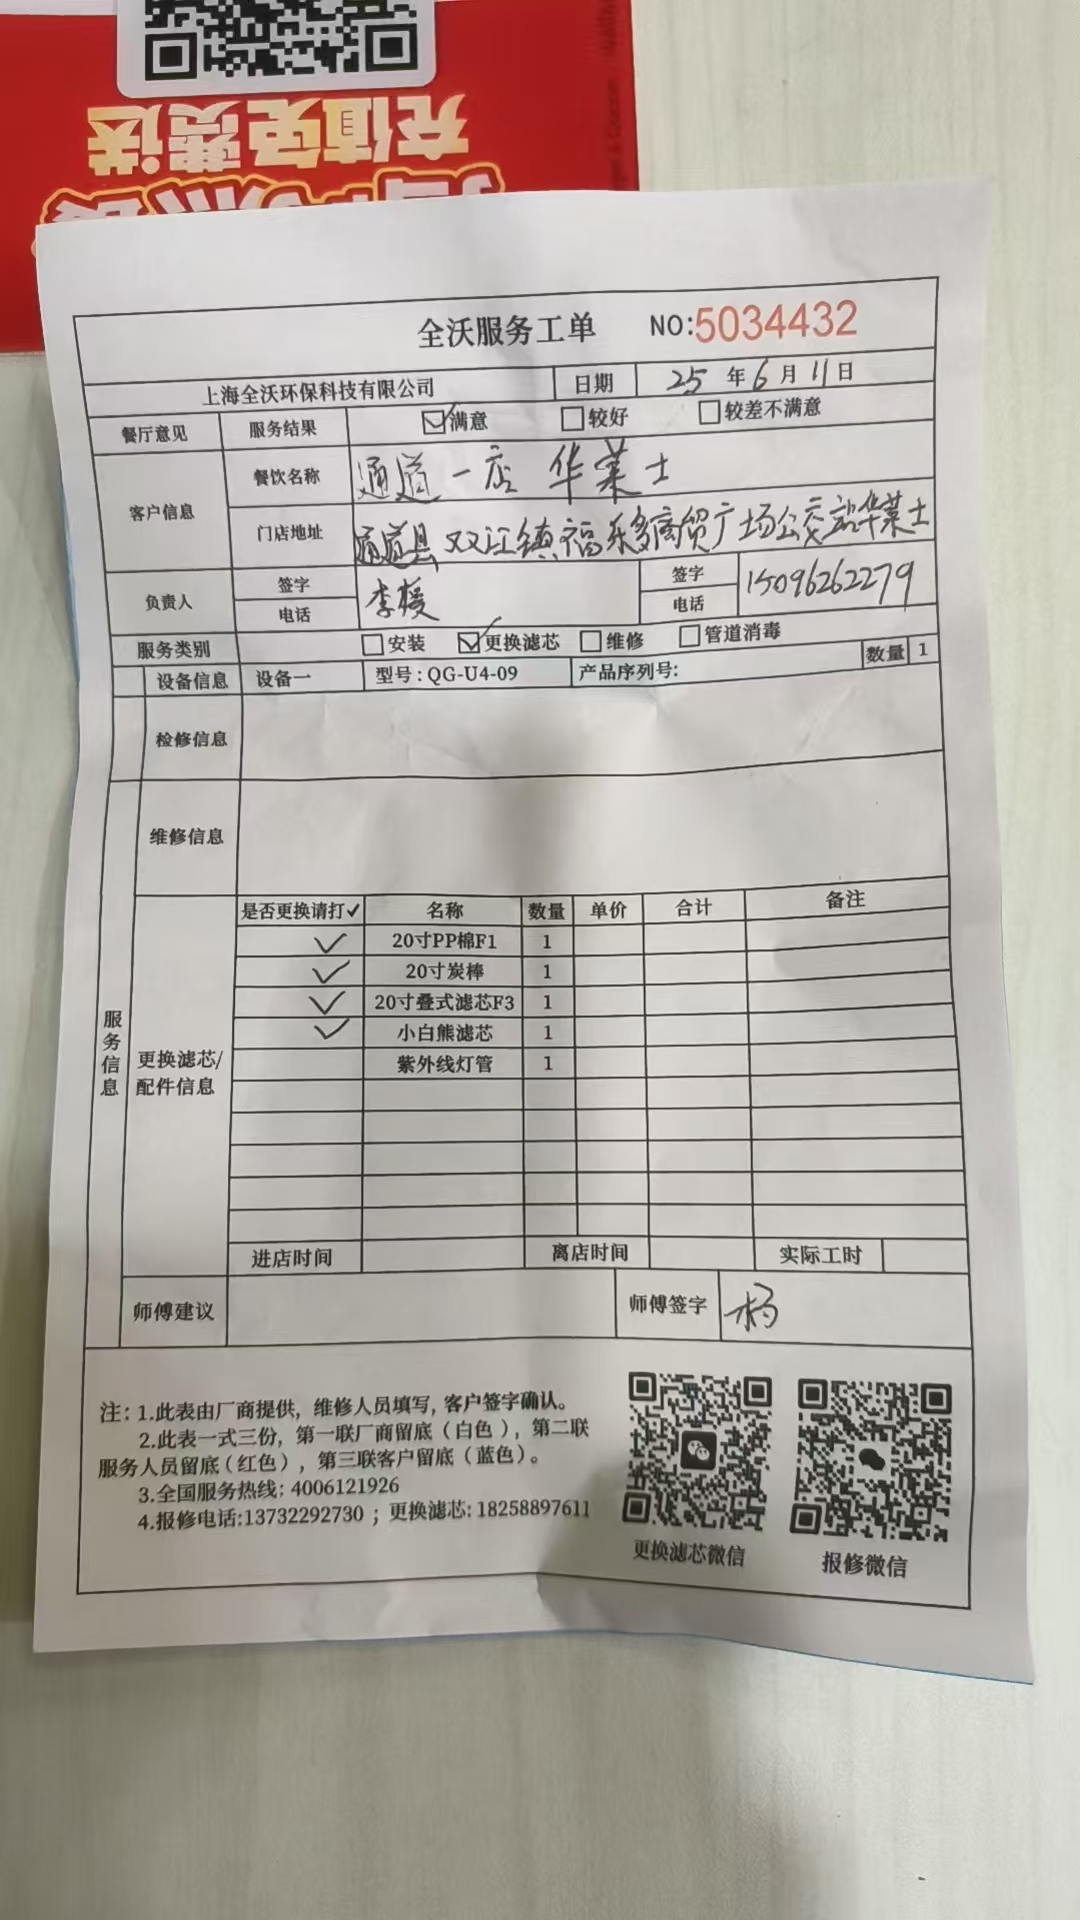 充值免费送
全沃服务工单 NO:5034432
上海全沃环保科技有限公司 日期 25年6月11日
餐厅意见 服务结果 ☑满意 □较好 □较差不满意
客户信息 餐饮名称 通道一店 华莱士
门店地址 通道县双江镇福乐多商贸广场公交站华莱士
负责人 签字 电话 李媛 签字 电话 15096262279
服务类别 □安装 ☑更换滤芯 □维修 □管道消毒
设备信息 设备一 型号:QG-U4-09 产品序列号: 数量 1
检修信息
维修信息
服务信息
更换滤芯/配件信息
是否更换请打✓ 名称 数量 单价 合计 备注
✓ 20寸PP棉F1 1
✓ 20寸炭棒 1
✓ 20寸叠式滤芯F3 1
✓ 小白熊滤芯 1
紫外线灯管 1
进店时间 离店时间 实际工时
师傅建议 师傅签字 杨
注: 1.此表由厂商提供, 维修人员填写, 客户签字确认。
2.此表一式三份, 第一联厂商留底(白色), 第二联
服务人员留底(红色), 第三联客户留底(蓝色)。
3.全国服务热线: 4006121926
4.报修电话:13732292730 ; 更换滤芯: 18258897611
更换滤芯微信 报修微信